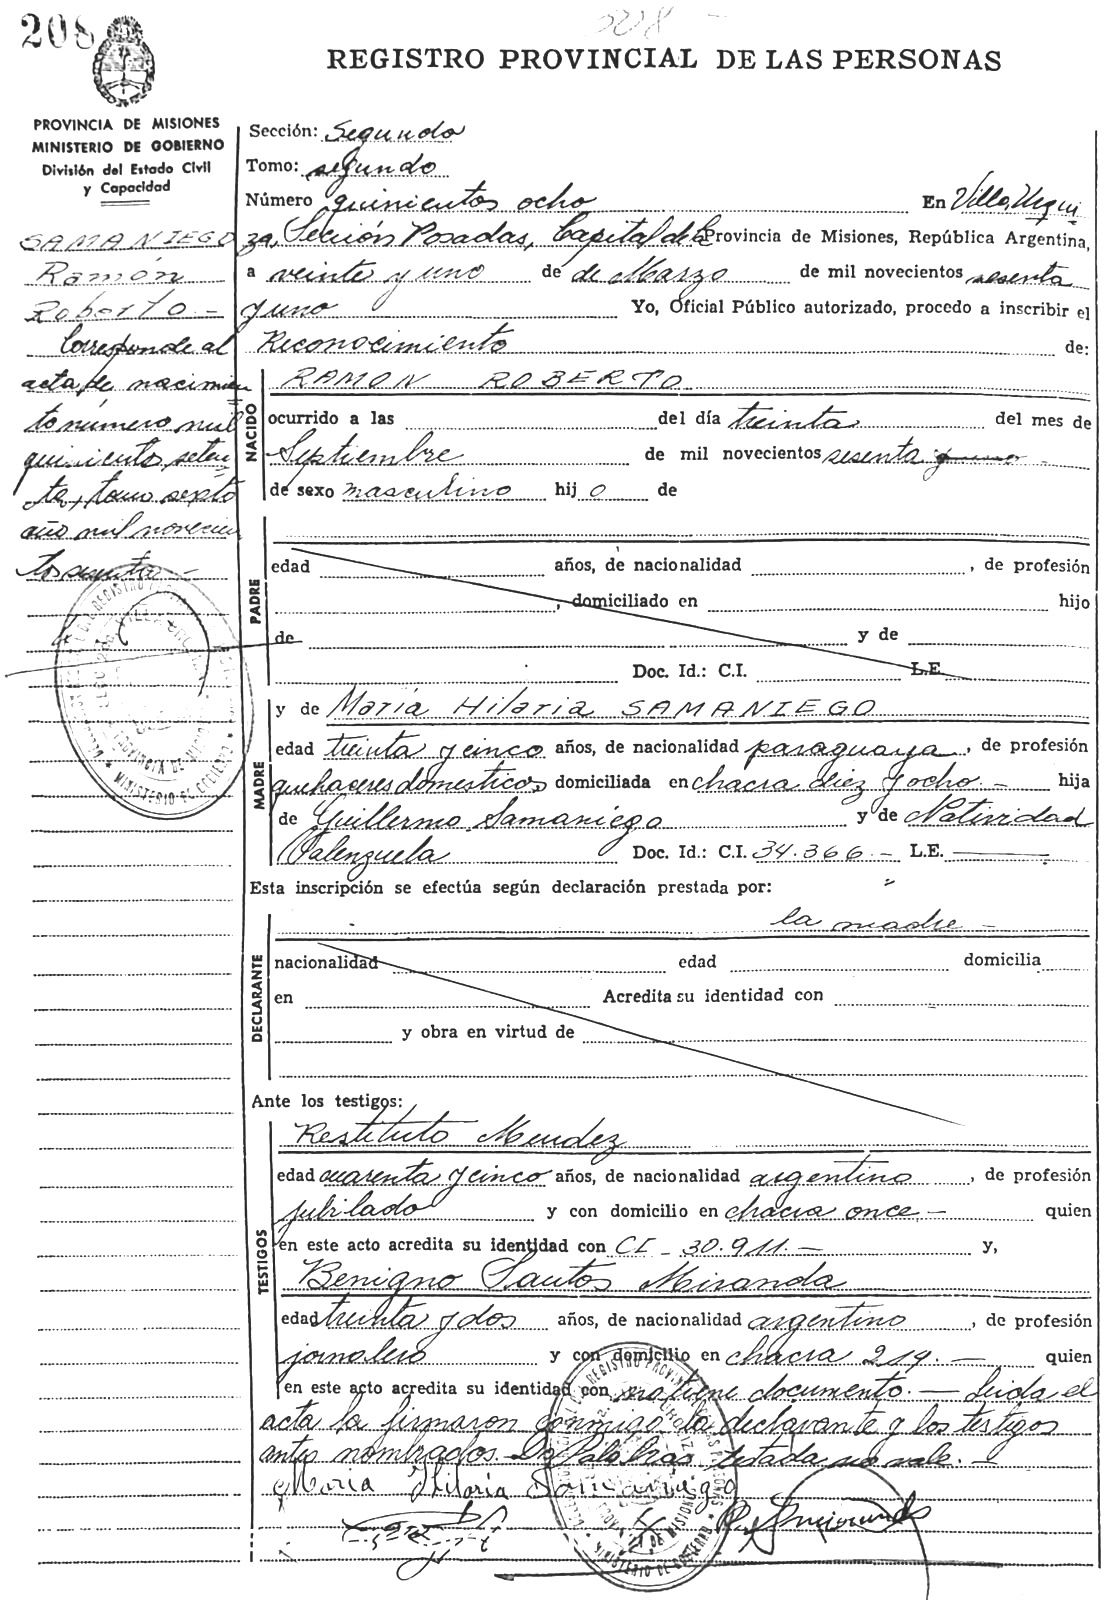 208
REGISTRO PROVINCIAL DE LAS PERSONAS
PROVINCIA DE MISIONES
MINISTERIO DE GOBIERNO
División del Estado Civil
y Capacidad
SAMANIEGO
Ramón
Roberto -
Corresponde al
acta de nacimien
to número mil
quiniento seten
ta, tomo sexto
año mil novecien
tos sesenta -
Sección: Segundo
Tomo: segundo
Número quinientos ocho En Villa Urqui
za, Sección Posadas, Capital de la Provincia de Misiones, República Argentina,
a veinte y uno de de Marzo de mil novecientos sesenta
y uno Yo, Oficial Público autorizado, procedo a inscribir el
Reconocimiento de:
NACIDO
RAMON ROBERTO
ocurrido a las del día treinta del mes de
Septiembre de mil novecientos sesenta y uno
de sexo masculino hijo de
PADRE
edad años, de nacionalidad , de profesión
, domiciliado en hijo
de y de
Doc. Id.: C.I. L.E.
MADRE
y de María Hilaria SAMANIEGO
edad treinta y cinco años, de nacionalidad paraguaya, de profesión
quehaceres domesticos, domiciliada en chacra diez y ocho - hija
de Guillermo Samaniego y de Natividad
Valenzuela Doc. Id.: C.I. 34.366 - L.E.
Esta inscripción se efectúa según declaración prestada por:
DECLARANTE
la madre -
nacionalidad edad domicilia
en Acredita su identidad con
y obra en virtud de
Ante los testigos:
TESTIGOS
Restituto Mendez
edad cuarenta y cinco años, de nacionalidad argentino, de profesión
jubilado y con domicilio en chacra once - quien
en este acto acredita su identidad con CI - 30.911. - y,
Benigno Santos Miranda
edad treinta y dos años, de nacionalidad argentino, de profesión
jornalero y con domicilio en chacra 219. - quien
en este acto acredita su identidad con no tiene documento. - Leida el
acta la firmaron conmigo la declarante y los testigos
antes nombrados. Dos Palabras testada no vale. -
Maria Hilaria Samaniego